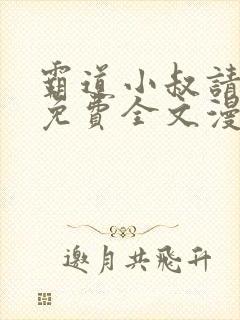 霸道小叔請
免費全文漫
邀月共飛升